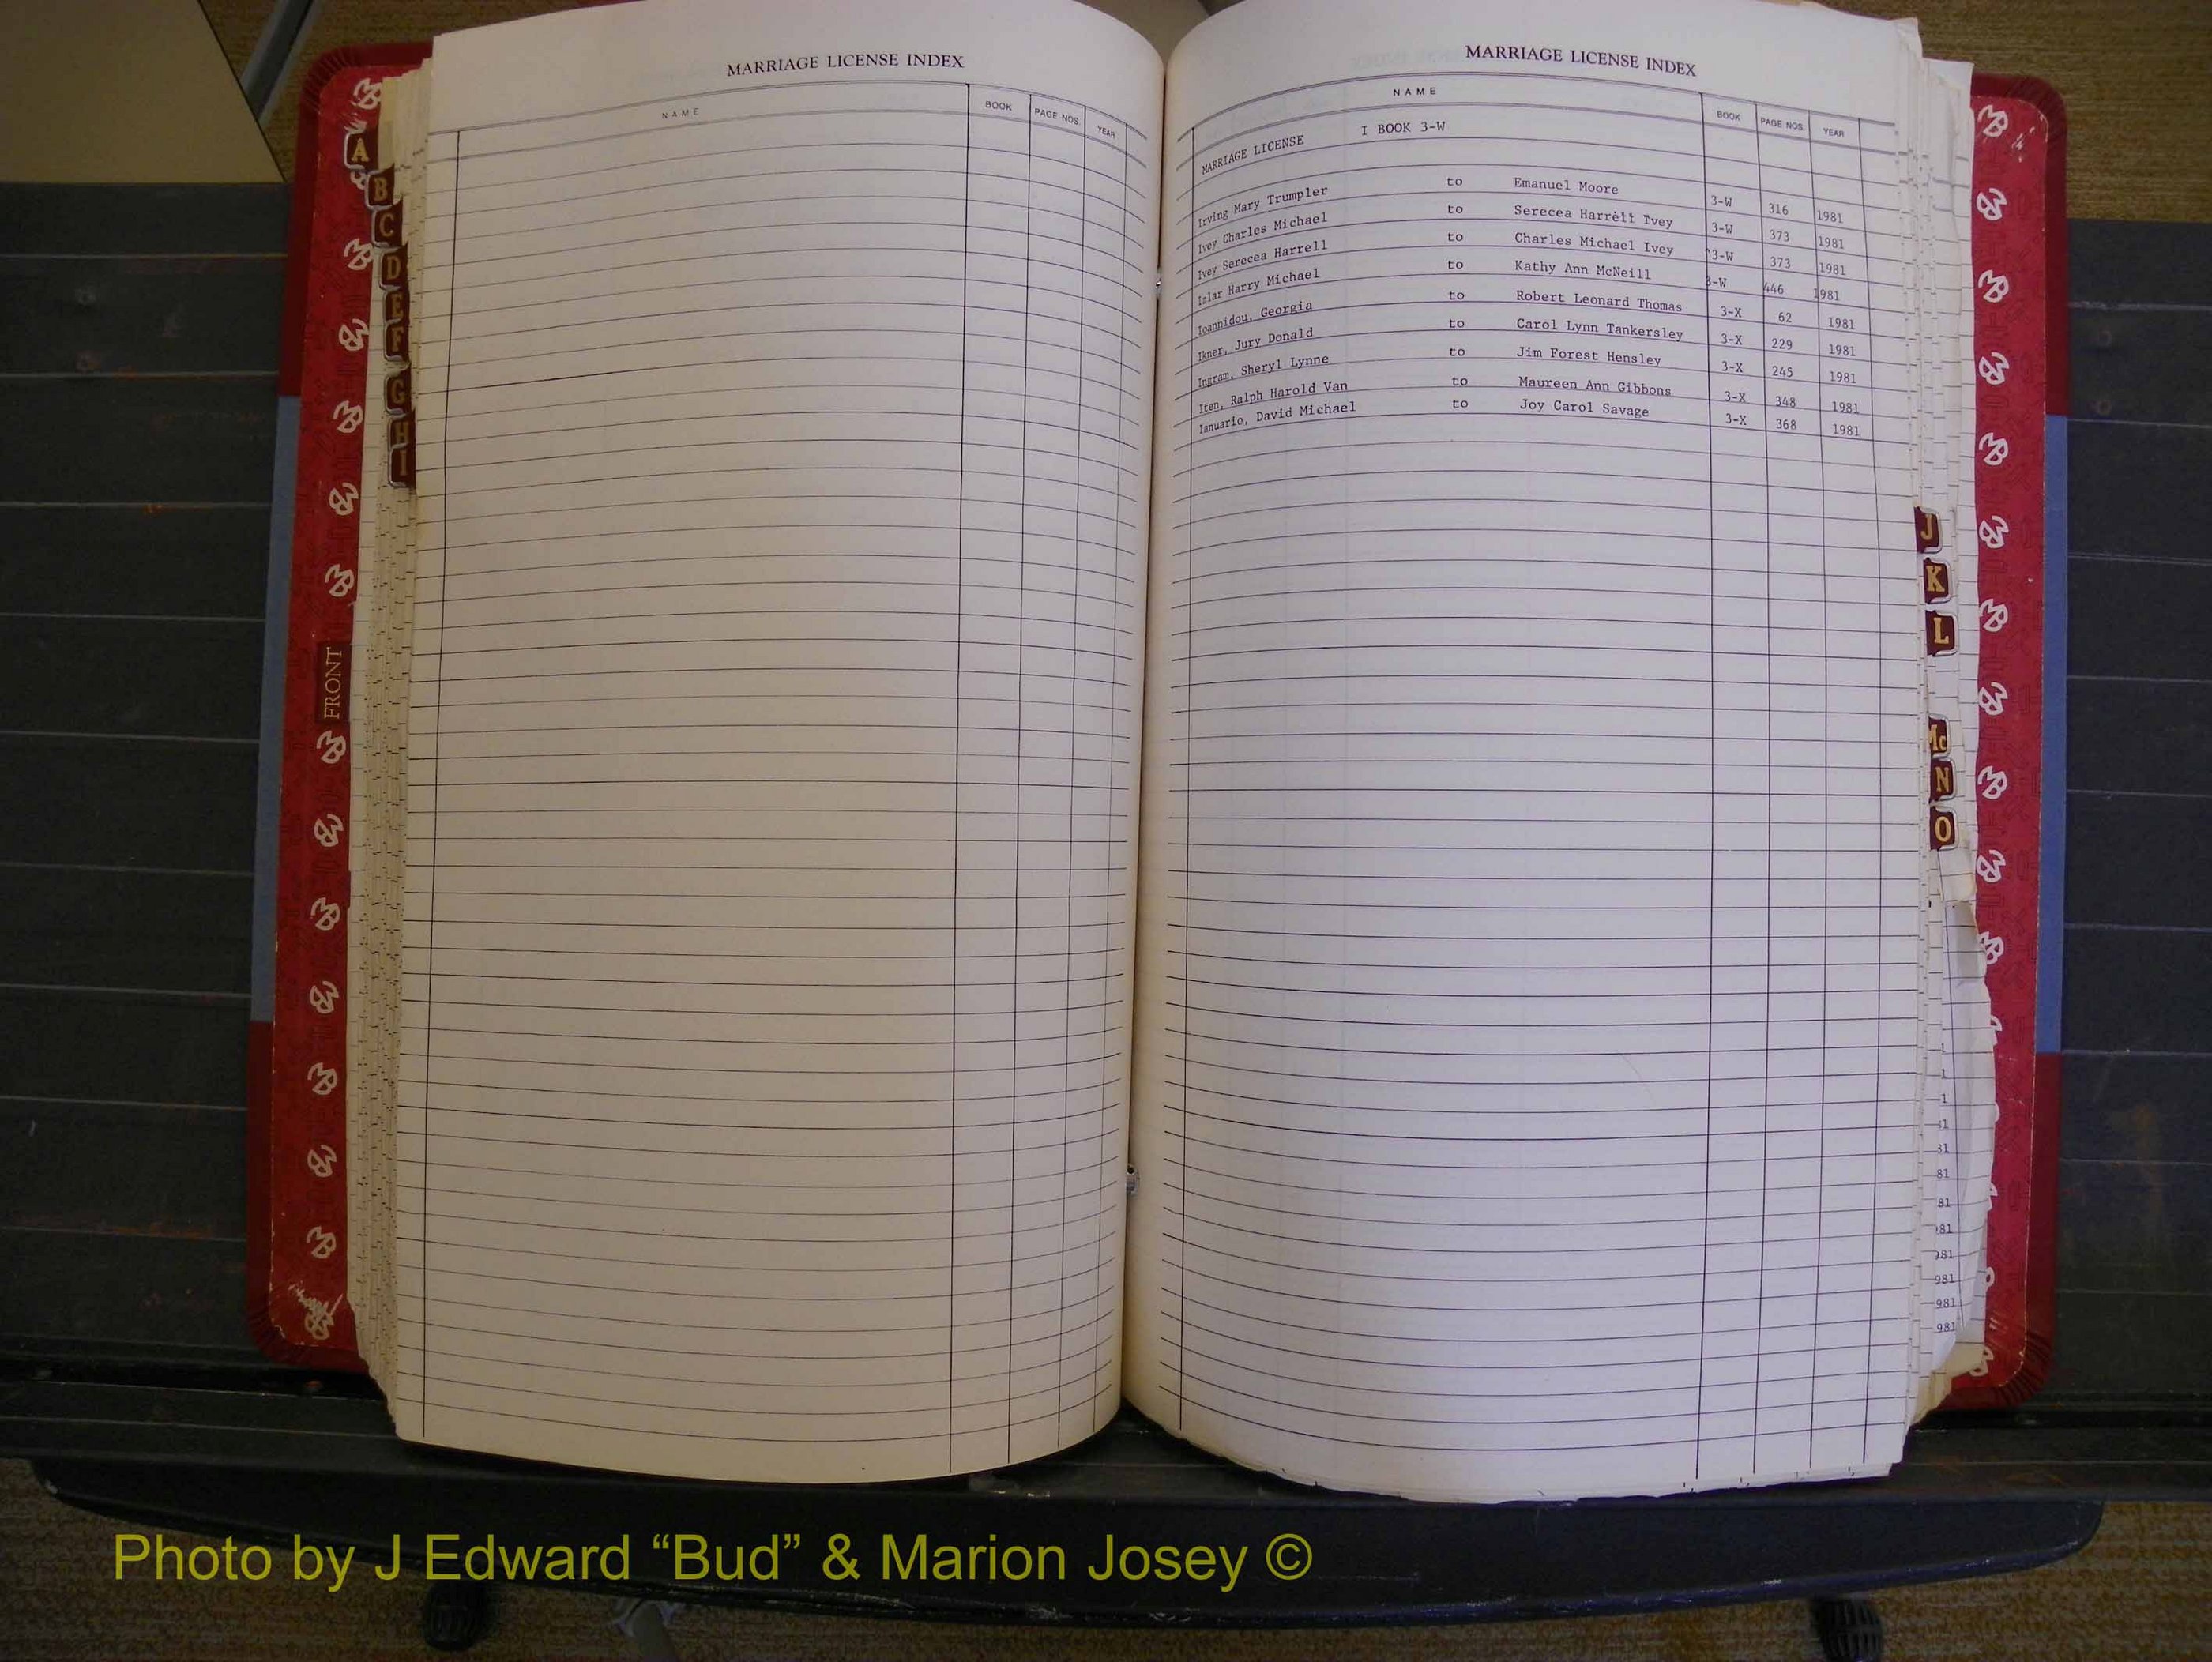 MARRIAGE LICENSE INDEX
NAME BOOK PAGE NOS. YEAR
A
B
C
D
E
F
G
H
I
FRONT
MARRIAGE LICENSE INDEX
NAME BOOK PAGE NOS. YEAR
MARRIAGE LICENSE I BOOK 3-W
Irving Mary Trumpler to Emanuel Moore 3-W 316 1981
Ivey Charles Michael to Serecea Harrell Ivey 3-W 373 1981
Ivey Serecea Harrell to Charles Michael Ivey 3-W 373 1981
Izlar Harry Michael to Kathy Ann McNeill 3-W 446 1981
Ioannidou, Georgia to Robert Leonard Thomas 3-X 62 1981
Ikner, Jury Donald to Carol Lynn Tankersley 3-X 229 1981
Ingram, Sheryl Lynne to Jim Forest Hensley 3-X 245 1981
Iten, Ralph Harold Van to Maureen Ann Gibbons 3-X 348 1981
Ianuario, David Michael to Joy Carol Savage 3-X 368 1981
J
K
L
Mc
N
O
1
1
1
31
81
81
81
981
981
981
Photo by J Edward “Bud” & Marion Josey ©